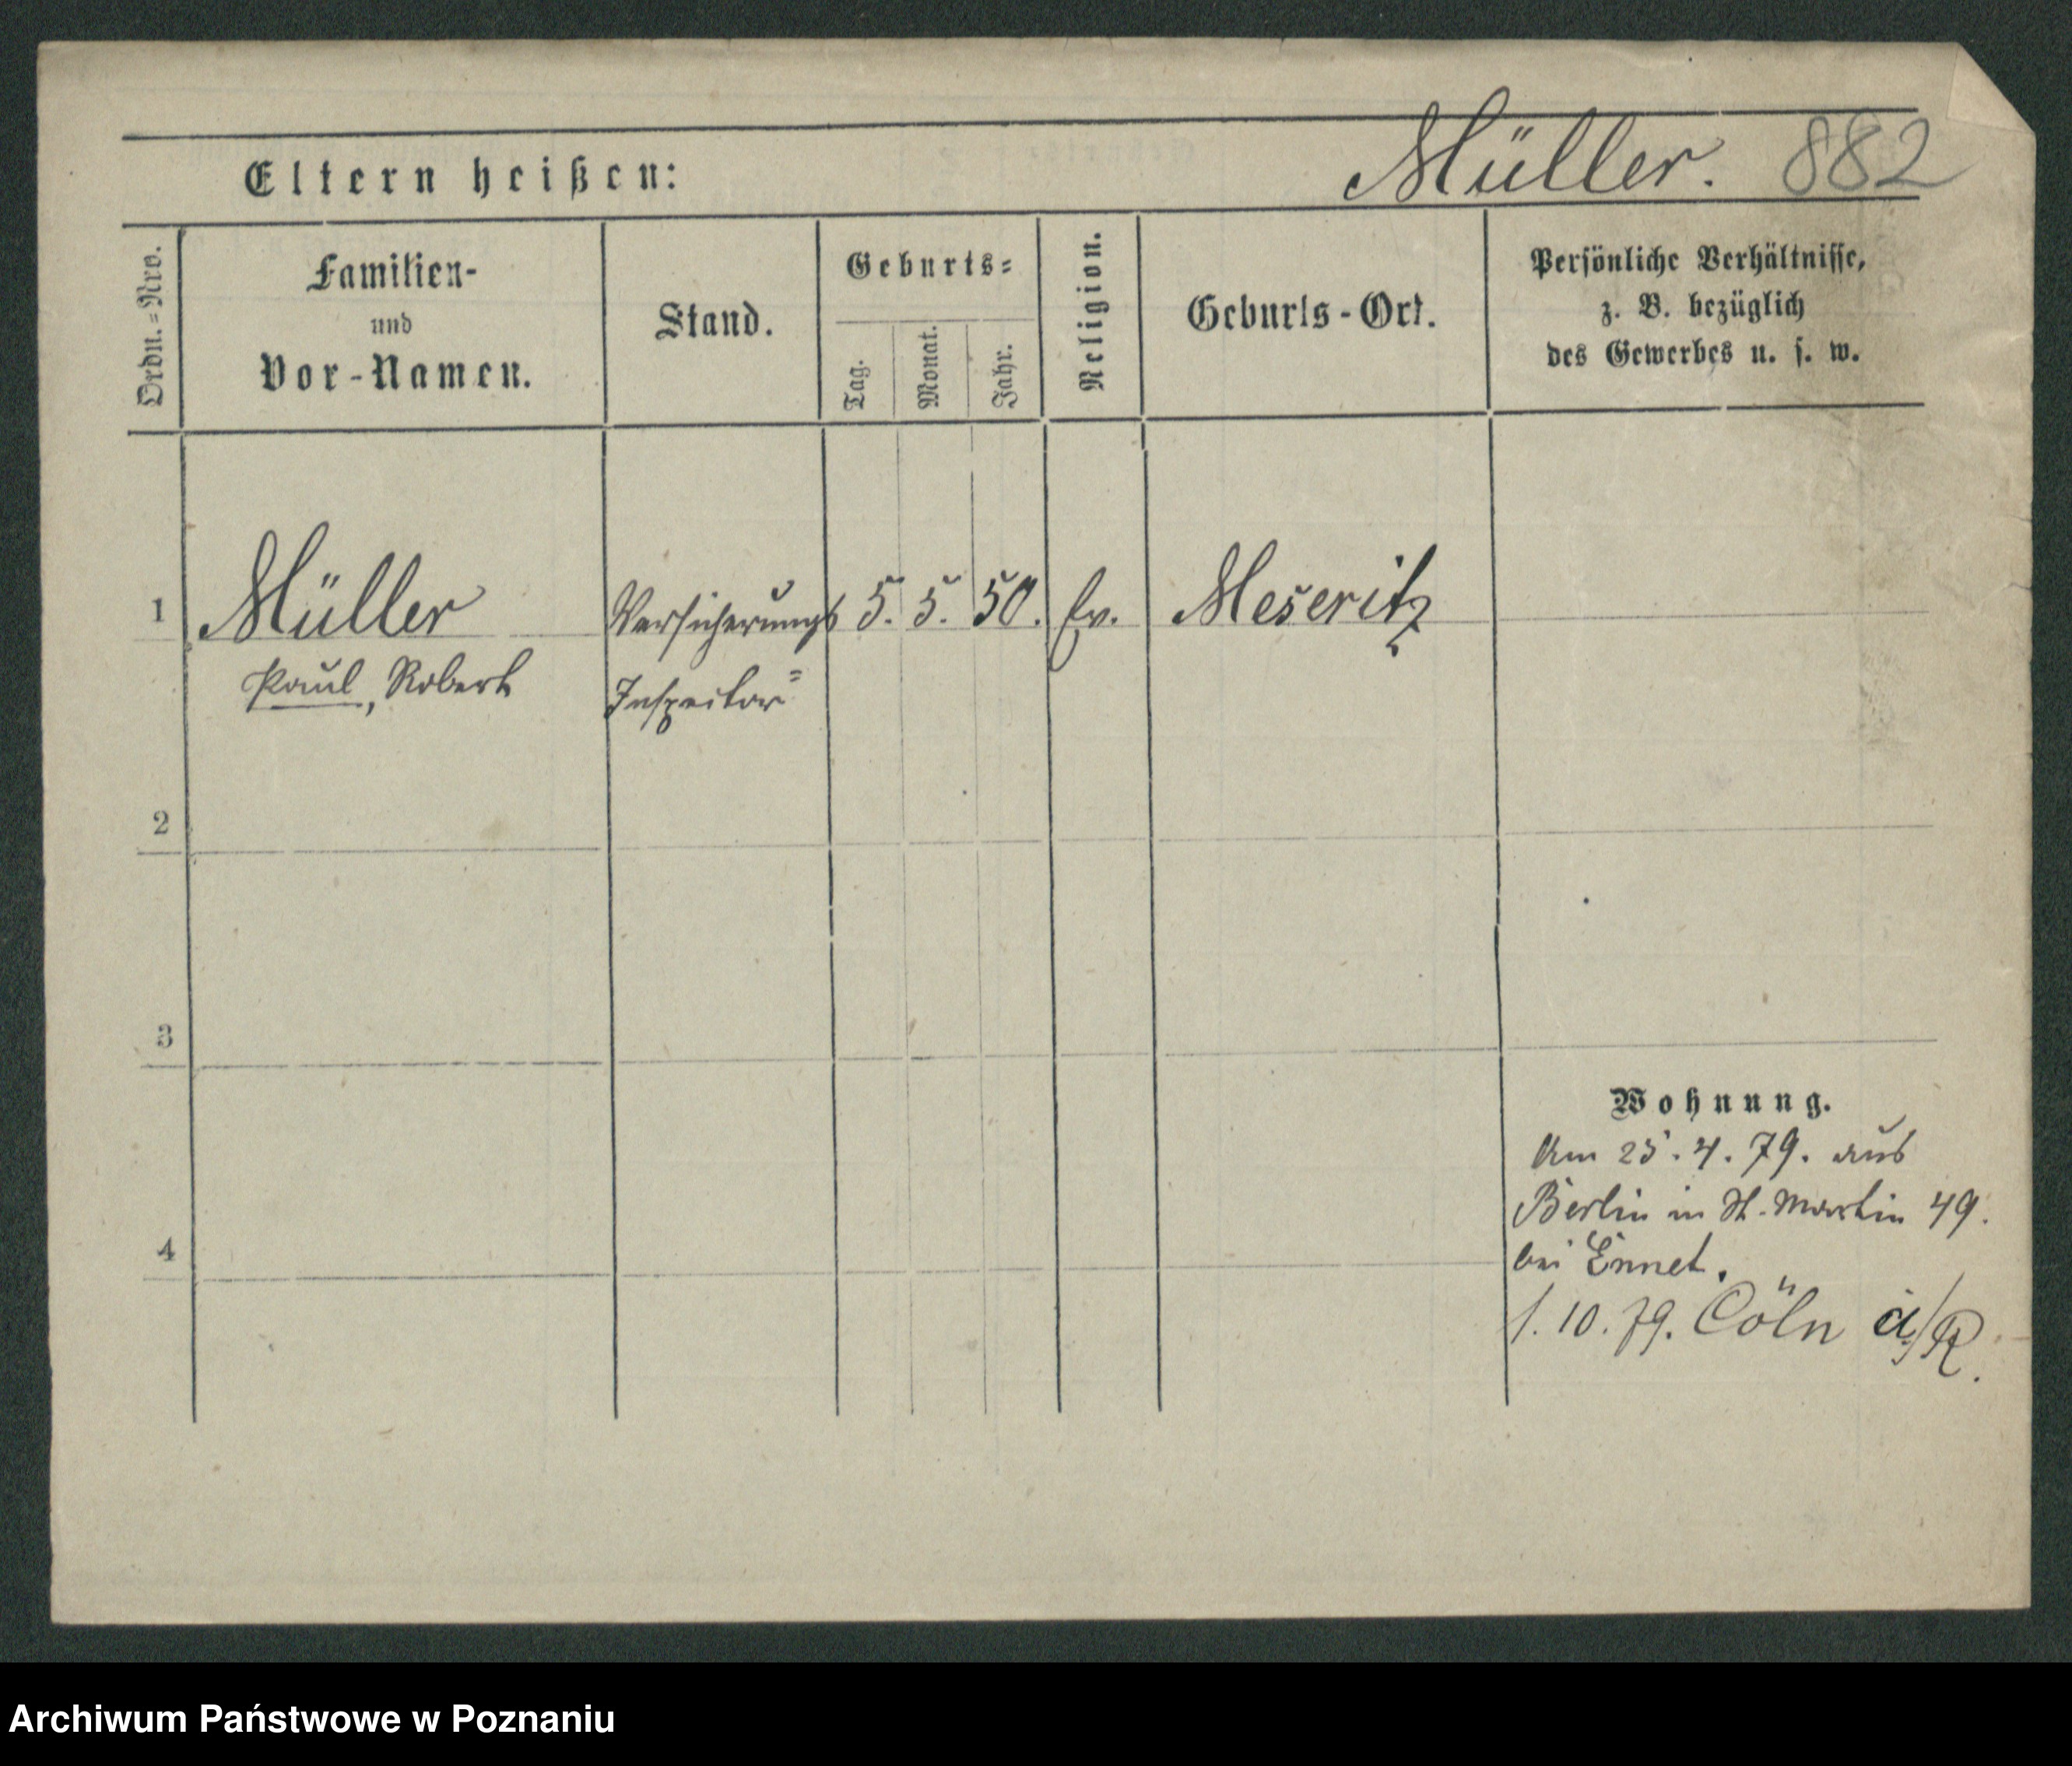 Eltern heißen: Müller. 882
Ordn.=Nro.
Familien-
und
Vor-Namen.
Stand.
Geburts=
Tag.
Monat.
Jahr.
Religion.
Geburts-Ort.
Persönliche Verhältnisse,
z. B. bezüglich
des Gewerbes u. s. w.
1 Müller Versicherungs 5. 5. 50. Ev. Meseritz
Paul, Robert Inspector=
2
3
4
Wohnung.
Am 25.4.79. aus
Berlin in St. Martin 49.
bei Ennet.
1.10.79. Cöln a/R.
Archiwum Państwowe w Poznaniu